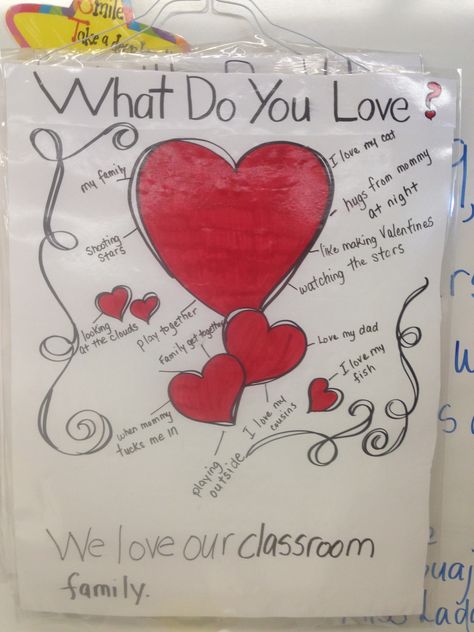 Smile
Take a
What Do You Love?
my family
I love my cat
hugs from mommy
at night
shooting
stars
like making Valentines
watching the stars
looking
at the clouds
play together
Family get together
Love my dad
I love my
fish
when mommy
tucks me in
I love my
cousins
playing
outside
We love our classroom
family.